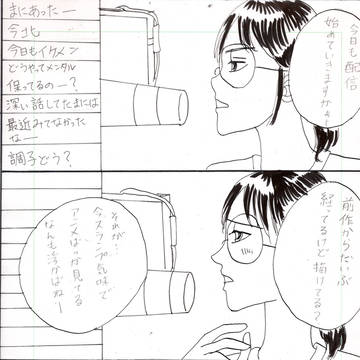 今日も配信
始めていきますかぁー
まにあったー
今北
今日もイケメン
どうやってメンタル
保ってるのー?
深い話してたまには
最近みてなかった
なー
調子どう?
前作からだいぶ
経ってるけど描けてる?
それが…
今スランプ気味で
アニメばっか見てる
なんも浮かばねー